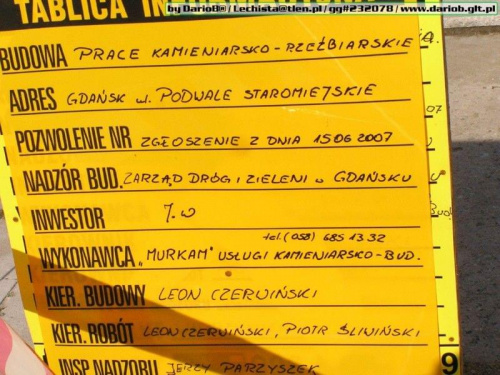 by DarioB@ / Lechista@tlen.pl / gg#232078 / www.dariob.glt.pl
TABLICA
BUDOWA PRACE KAMIENIARSKO-RZEŹBIARSKIE
ADRES GDAŃSK ul. PODWALE STAROMIEJSKIE
POZWOLENIE NR ZGŁOSZENIE Z DNIA 15 06 2007
NADZÓR BUD. ZARZĄD DRÓG I ZIELENI w GDAŃSKU
INWESTOR J.W
tel. (058) 685 13 32
WYKONAWCA „MURKAM" USŁUGI KAMIENIARSKO-BUD.
KIER. BUDOWY LEON CZERWIŃSKI
KIER. ROBÓT LEON CZERWIŃSKI, PIOTR ŚLIWIŃSKI
INSP NADZORU JERZY PARZYSZEK
07
Bud
9